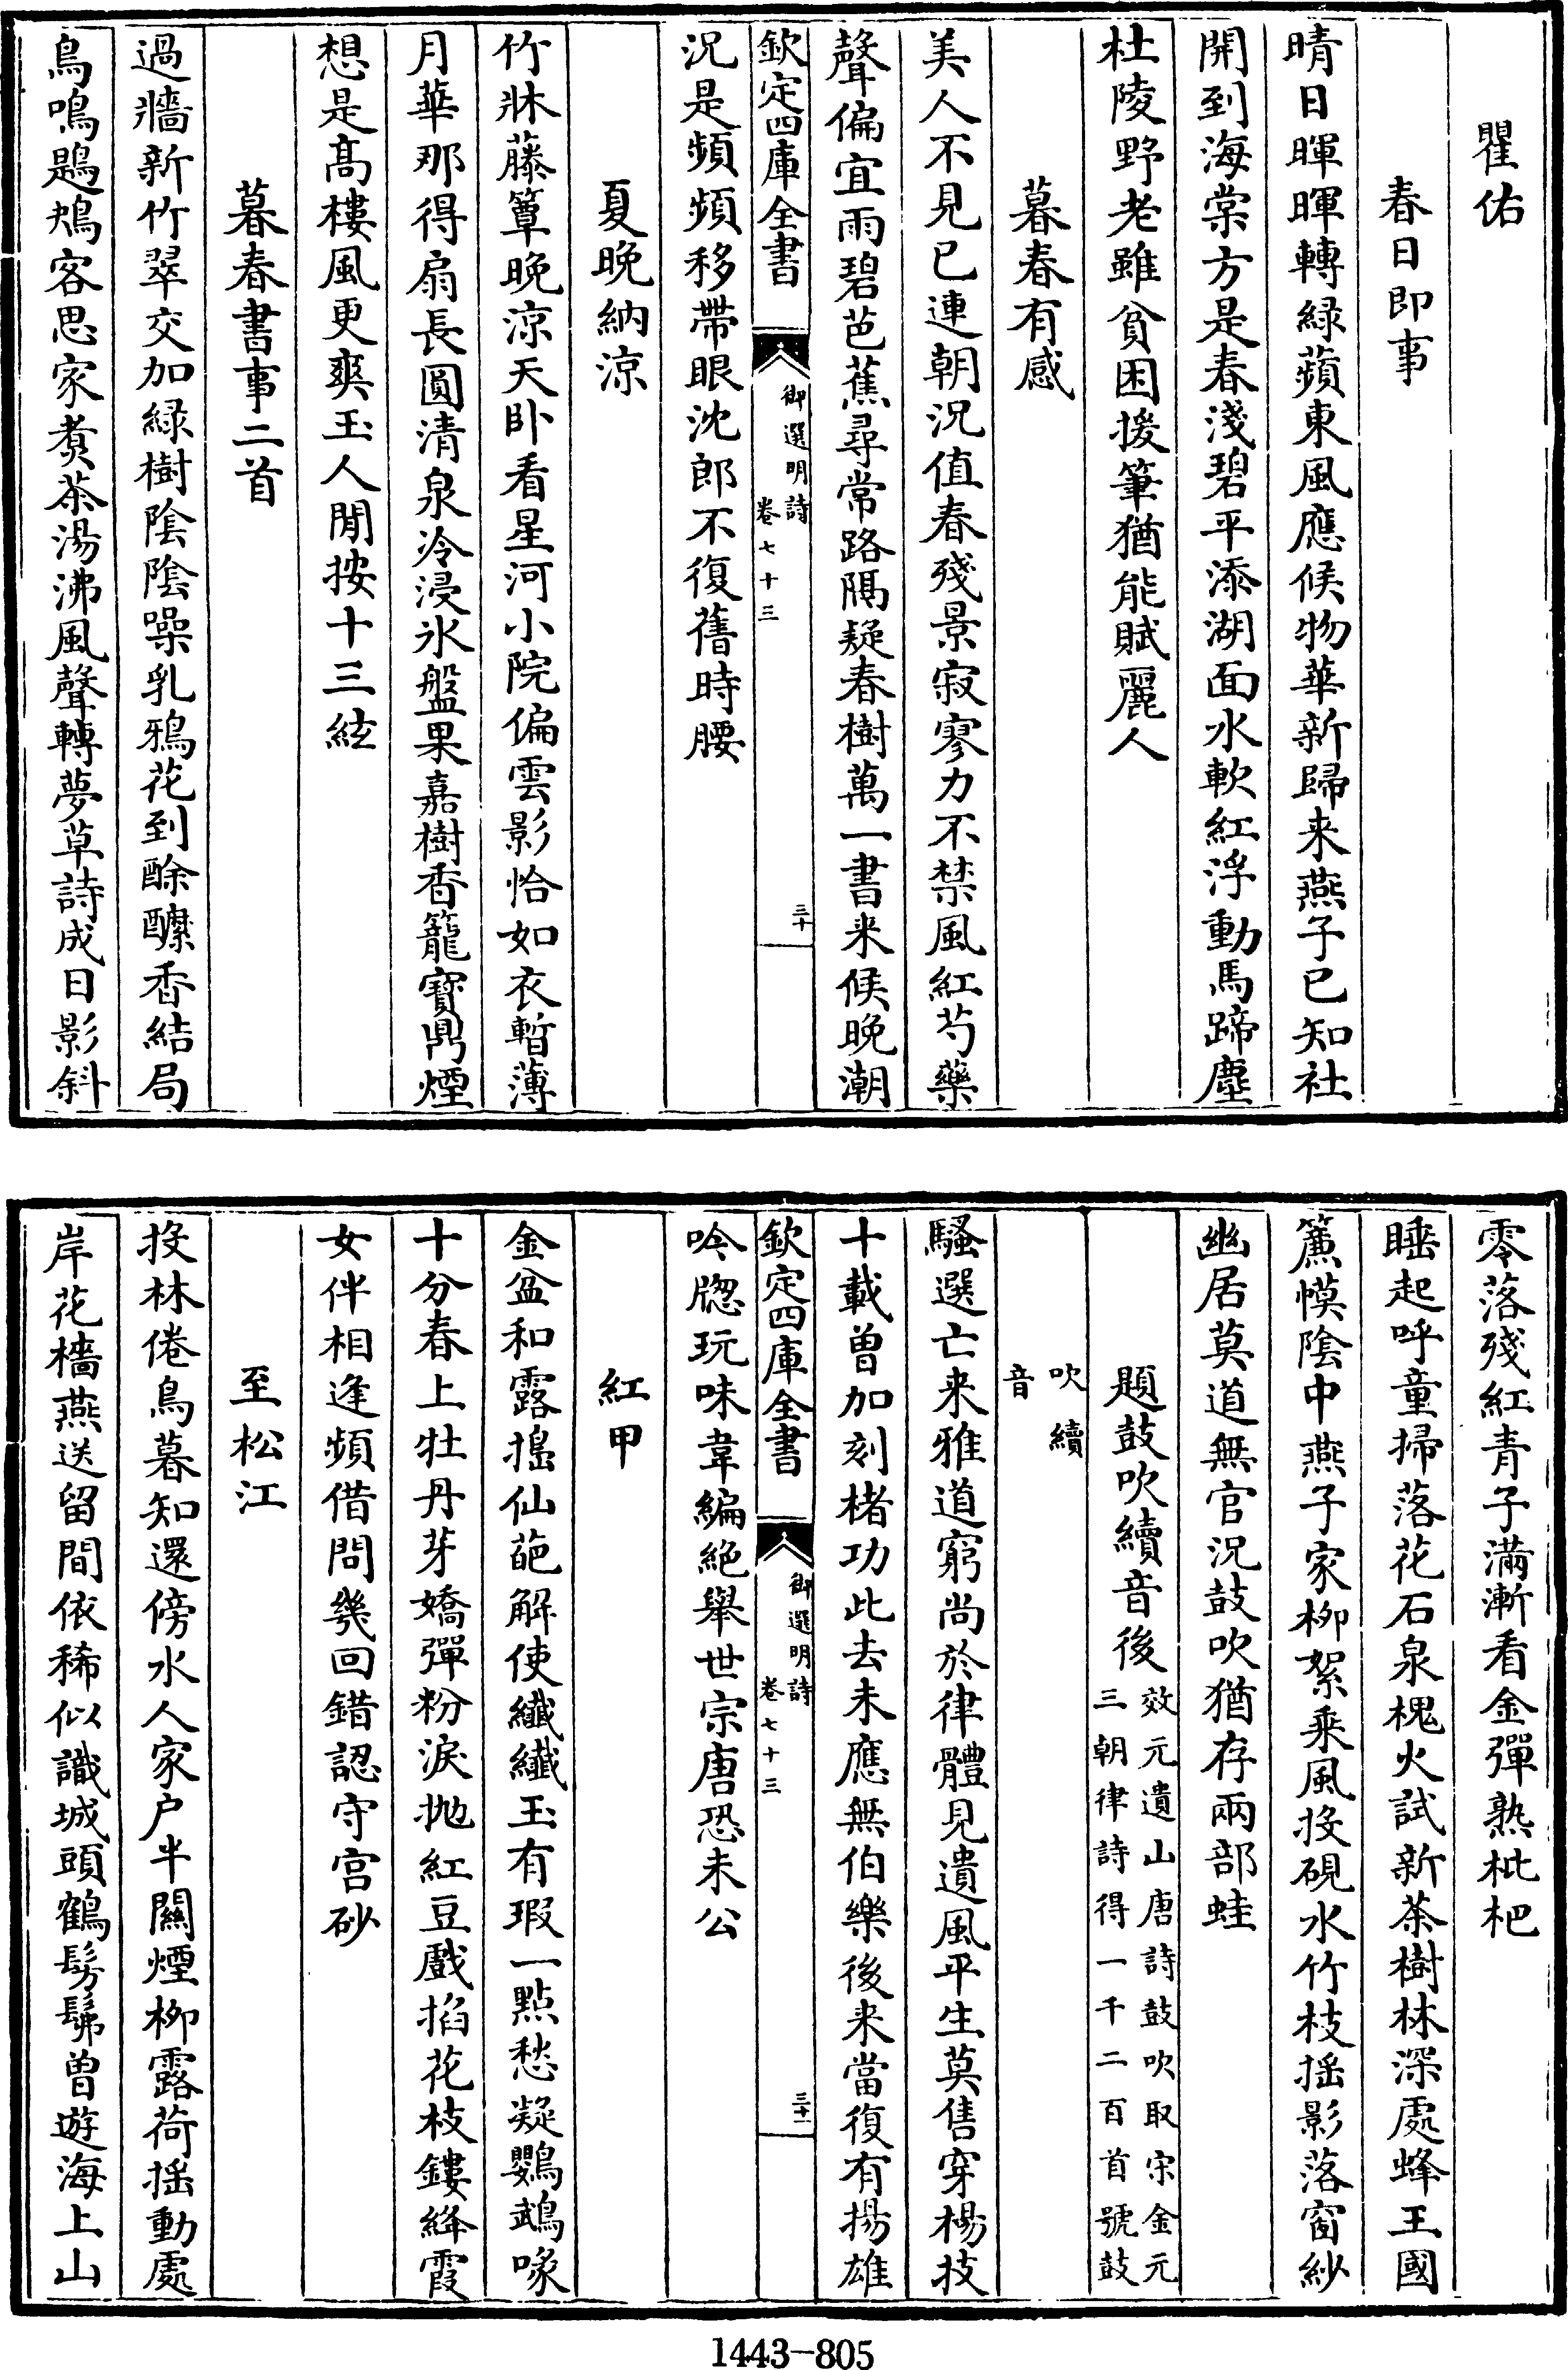 瞿佑
春日即事
晴日暉暉轉緑蘋東風應候物華新歸来燕子已知社
開到海棠方是春淺碧平添湖面水軟紅浮動馬蹄塵
杜陵野老雖貧困援筆猶能賦麗人
暮春有感
美人不見已連朝况值春殘景寂寥力不禁風紅芍藥
聲偏宜雨碧芭蕉尋常路隔疑春樹萬一書来候晚潮
欽定四庫全書
御選明詩
卷七十三
三十
況是頻頻移帶眼沈郎不復舊時腰
夏晚納涼
竹牀藤簟晚涼天卧看星河小院偏雲影恰如衣暫薄
月華那得扇長圓清泉冷浸氷盤果嘉樹香籠寳鼎煙
想是髙樓風更爽玉人閒按十三絃
暮春書事二首
過牆新竹翠交加緑樹陰陰噪乳鴉花到酴醾香結局
鳥鳴鶗鴂客思家煑茶湯沸風聲轉夢草詩成日影斜
零落殘紅青子滿漸看金彈熟枇杷
睡起呼童掃落花石泉槐火試新茶樹林深處蜂王國
簾幙陰中燕子家柳絮乘風投硯水竹枝揺影落窗紗
幽居莫道無官况鼓吹猶存兩部蛙
題鼓吹續音後
效元遺山唐詩鼓吹取宋金元
三朝律詩得一千二百首號鼓
吹續
音
騷選亡来雅道窮尚於律體見遺風平生莫售穿楊技
十載曽加刻楮功此去未應無伯樂後来當復有揚雄
欽定四庫全書
御選明詩
卷七十三
三十一
吟牕玩味韋編絶舉世宗唐恐未公
紅甲
金盆和露搗仙葩解使纖纖玉有瑕一點愁疑鸚鵡喙
十分春上牡丹芽嬌彈粉淚抛紅豆戲掐花枝鏤絳霞
女伴相逢頻借問幾回錯認守宫砂
至松江
投林倦鳥暮知還傍水人家户半關煙柳露荷揺動處
岸花檣燕送留間依稀似識城頭鶴髣髴曽遊海上山
1443-805